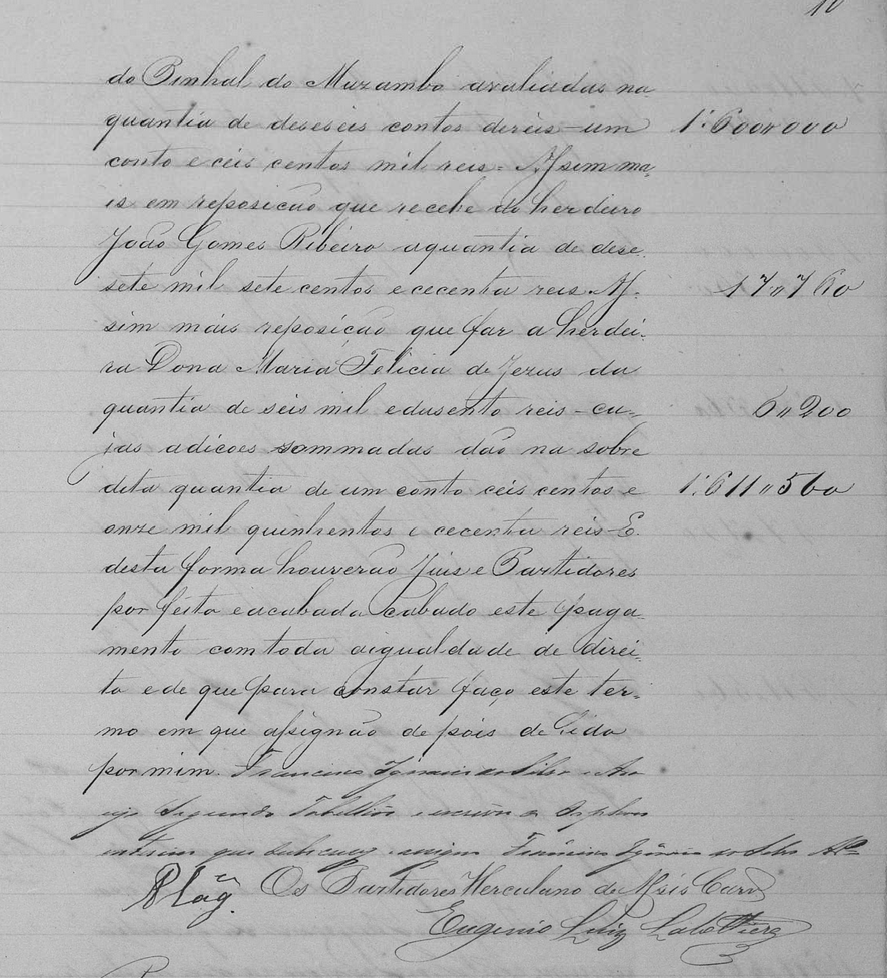 10
do Pinhal do Muzambo avaliadas na
quantia de deseseis contos dereis - um 1:600"000
conto e ceis centos mil reis = Assim ma,
is em reposicão que recebe do herdeiro
João Gomes Ribeiro aquantia de dese-
sete mil sete centos ececenta reis. As- 17"760
sim mais reposicão que far a herdei-
ra Dona Maria Felicia de Jezus da
quantia de seis mil edusento reis - cu- 6"200
jas adicoes sommadas dão na sobre
dita quantia de um conto ceis centos e 1:611"560
onze mil quinhentos e cecenta reis - E.
desta forma houverão Juis e Partidores
por feito eacabada cabado este paga-
mento comtoda aigualdade de direi-
to ede que para constar faço este ter-
mo em que assignão depois de lido
pormim. Francisco Ignacio da Silva Ara
ujo Segundo Tabellião escrivão de Orphãos
que Francisco Ignacio da Silva Aro
Os Partidores Herculano de Assis Carvo
Eugenio Luiz